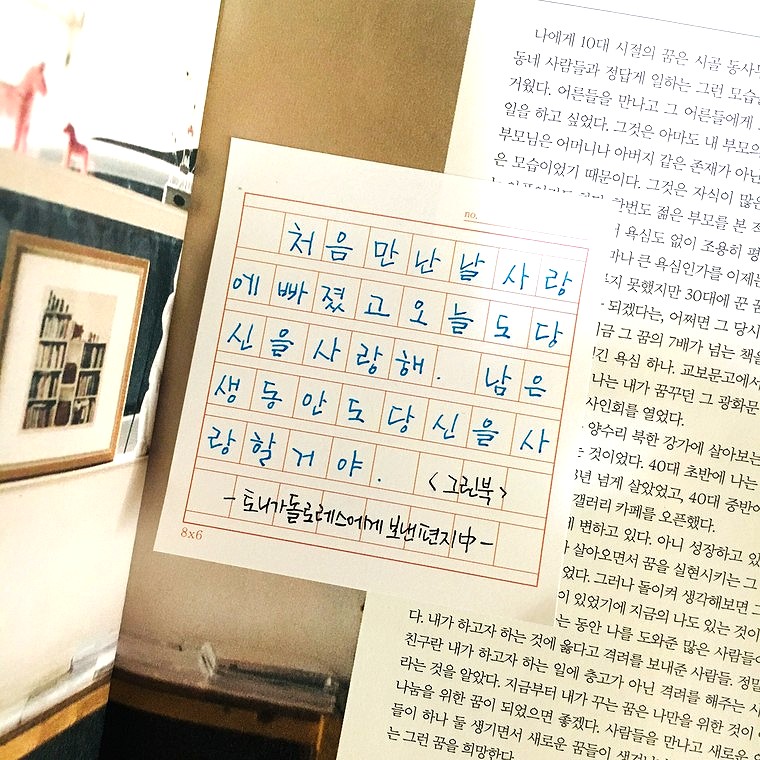 no.
처음 만난 날 사랑
에 빠졌고 오늘도 당
신을 사랑해. 남은
생 동안도 당신을 사
랑할 거야. <그린북>
- 토니가 돌로레스에게 보낸 편지 中 -
8x6
나에게 10대 시절의 꿈은 시골
동네 사람들과 정답게 일하는 그런
거웠다. 어른들을 만나고 그 어른들에게
일을 하고 싶었다. 그것은 아마도 내 부모의
부모님은 어머니나 아버지 같은 존재가
은 모습이었기 때문이다. 그것은 자식이 많은
한번도 젊은 부모를 본
욕심도 없이 조용히
큰 욕심인가를
못했지만 30대에 꾼
되겠다는, 어쩌면 그 당시
그 꿈의 7배가 넘는 책을
욕심 하나. 교보문고에서
나는 내가 꿈꾸던 그 광화문
사인회를 열었다.
양수리 북한 강가에 살아보는
것이었다. 40대 초반에 나는
넘게 살았었고, 40대 중반에
갤러리 카페를 오픈했다.
변하고 있다. 아니 성장하고
살아오면서 꿈을 실현시키는 그
그러나 돌이켜 생각해보면
있었기에 지금의 나도 있는 것이
동안 나를 도와준 많은
다. 내가 하고자 하는 것에 옳다고 격려를 보내준 사람들.
친구란 내가 하고자 하는 일에 충고가 아닌 격려를 해주는
라는 것을 알았다. 지금부터 내가 꾸는 꿈은 나만을 위한 것이
나눔을 위한 꿈이 되었으면 좋겠다. 사람들을 만나고 새로운
들이 하나 둘 생기면서 새로운 꿈들이
는 그런 꿈을 희망한다.